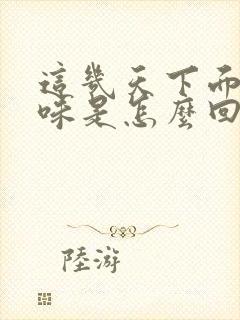 這幾天下而
味是怎麼回
陸游